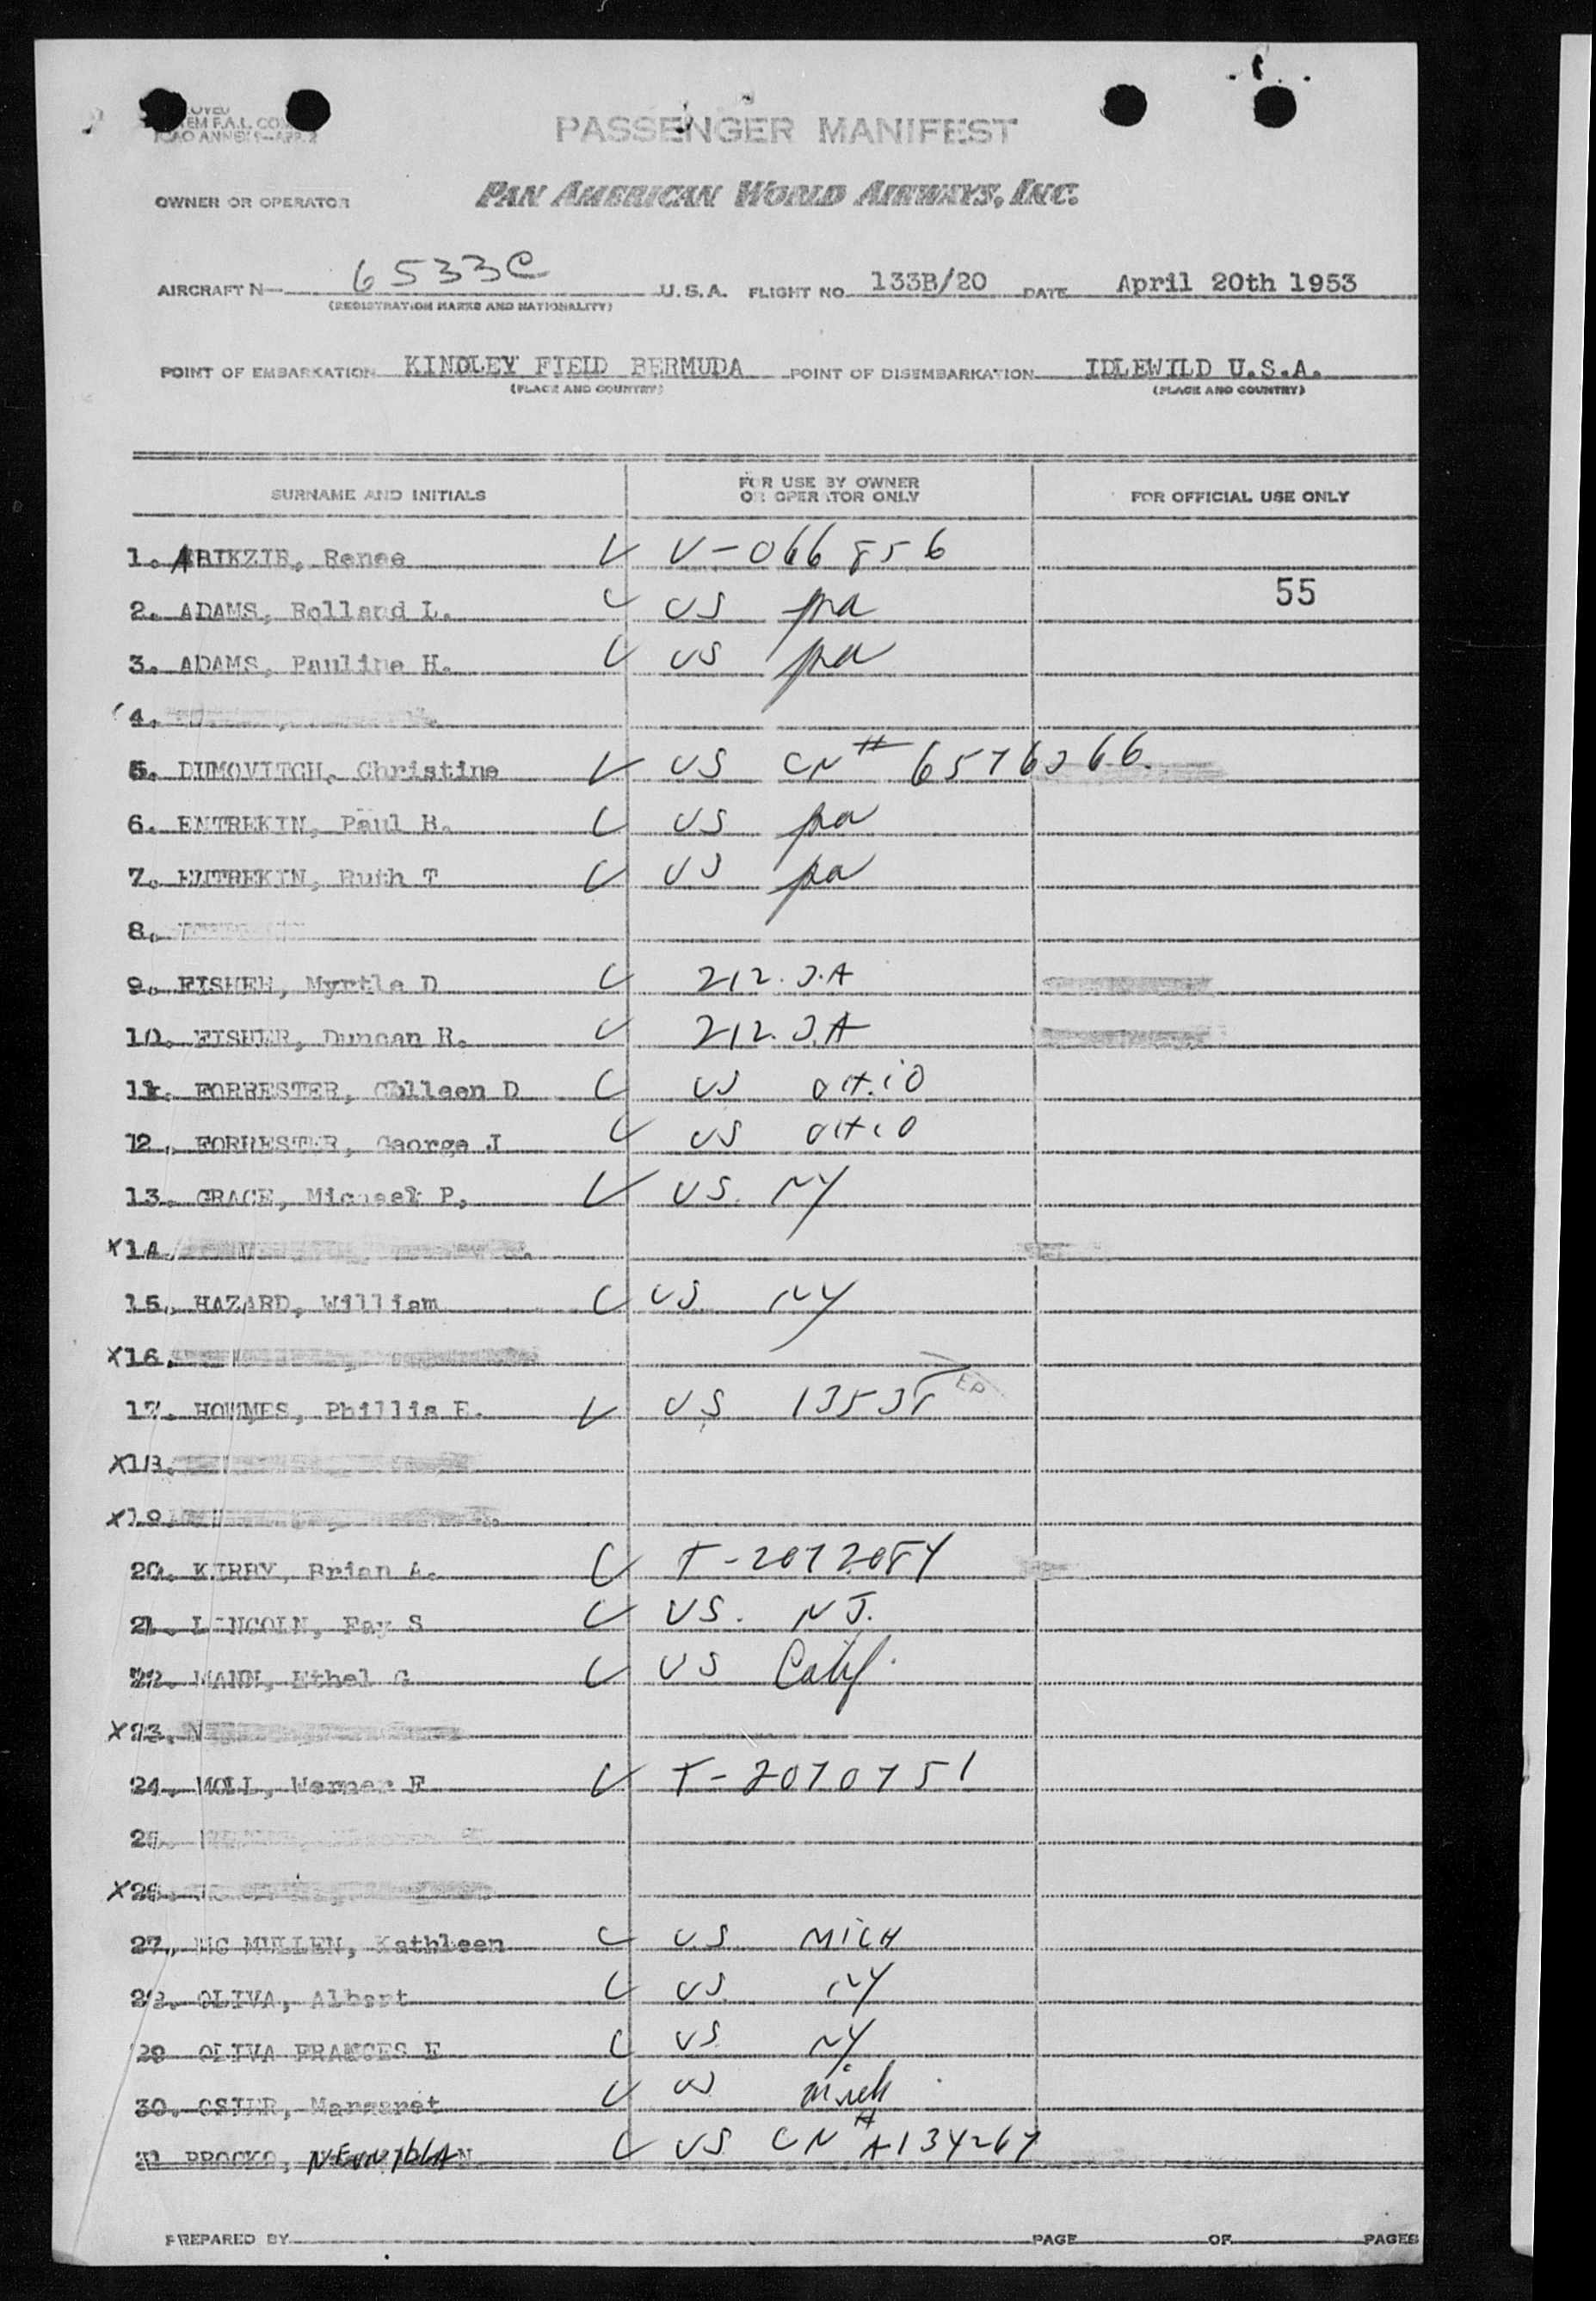 PASSENGER MANIFEST
OWNER OR OPERATOR PAN AMERICAN WORLD AIRWAYS, INC.
AIRCRAFT N 6533C U.S.A. FLIGHT NO. 133B/20 DATE April 20th 1953
(REGISTRATION MARKS AND NATIONALITY)
POINT OF EMBARKATION KINDLEY FIELD BERMUDA POINT OF DISEMBARKATION IDLEWILD U.S.A.
(PLACE AND COUNTRY) (PLACE AND COUNTRY)
SURNAME AND INITIALS FOR USE BY OWNER OR OPERATOR ONLY FOR OFFICIAL USE ONLY
1. Renee V-066856
55
2. ADAMS, Rolland L. US pa
3. ADAMS, Pauline H. US pa
4.
5. DUMOVITCH, Christine US CN# 6576366
6. ENTREKIN, Paul H. US pa
7. ENTREKIN, Ruth T US pa
8.
9. FISHER, Myrtle D 212.J.A
10. FISHER, Duncan R. 212.J.A
11. FORRESTER, Colleen D US OHIO
12. FORRESTER, George J US OHIO
13. GRACE, Michael P. US. NY
X14.
15. HAZARD, William US NY
X16.
17. HOMMES, Phillis E. US 13538 EP
X18.
X19.
20. KIRBY, Brian A. T-2072084
21. LINCOLN, Fay S US. NJ.
22. MANN, Ethel G US Calif.
X23.
24. MOLL, Werner F T-2070751
25.
X26.
27. MC MULLEN, Kathleen US MICH
28. OLIVA, Albert US NY
29 OLIVA FRANCES E US NY
30. OSTER, Margaret US mich
31 PROCKO, US CN # A134267
PREPARED BY PAGE OF PAGES